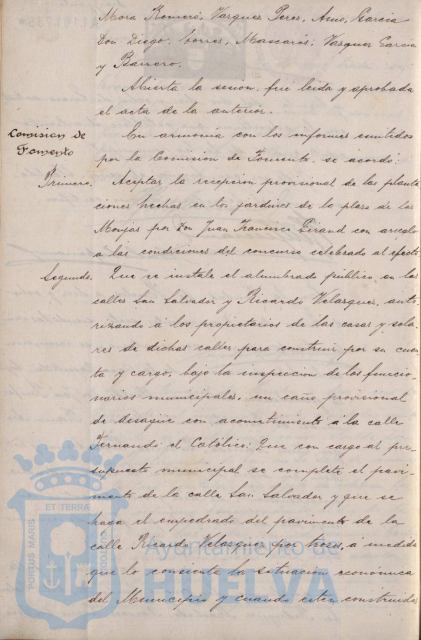 Mora Romero, Vazquez Perez, Amo, Garcia
Don Diego, Torres, Mascarós, Vazquez Garcia
y Barrero.
Abierta la sesion, fue leida y aprobada
el acta de la anterior.
Comision de
Fomento
En armonia con los informes emitidos
por la Comision de Fomento, se acordó:
Primero. Aceptar la recepcion provisional de las planta
ciones hechas en los jardines de la plaza de las
Monjas por Don Juan Francisco Giraud con arreglo
a las condiciones del concurso celebrado al efecto
Segundo. Que se instale el alumbrado público en las
calles San Salvador y Ricardo Velazquez, auto-
rizando a los propietarios de las casas y sola-
res de dichas calles para construir por su cuen
ta y cargo, bajo la inspeccion de los funcio-
narios municipales, un caño provisional
de desagüe con acometimiento á la calle
Fernando el Católico: Que con cargo al pre-
supuesto municipal se complete el pavi-
mento de la calle San Salvador y que se
haga el empedrado del pavimento de la
calle Ricardo Velazquez por trozos, á medida
que lo consienta la situacion económica
del Municipio y cuando esten construida
PORTUS MARIS
ET TERRÆ
CUSTODIA
Ayuntamiento de
HUELVA